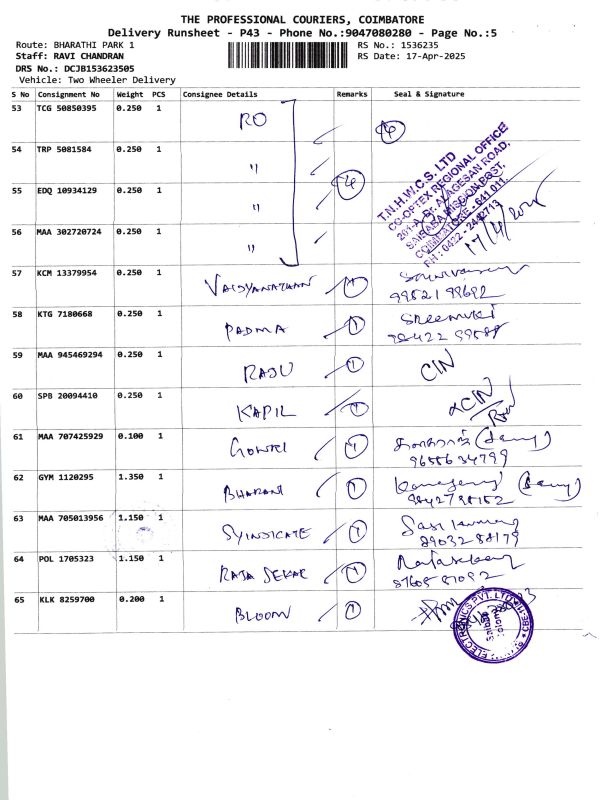 THE PROFESSIONAL COURIERS, COIMBATORE
Delivery Runsheet - P43 - Phone No.:9047080280 - Page No.:5
Route: BHARATHI PARK 1
RS No.: 1536235
Staff: RAVI CHANDRAN
RS Date: 17-Apr-2025
DRS No.: DCJB153623505
Vehicle: Two Wheeler Delivery
S No Consignment No Weight PCS Consignee Details Remarks Seal & Signature
53 TCG 50850395 0.250 1 RO 4
54 TRP 5081584 0.250 1 "
55 EDQ 10934129 0.250 1 " 4
56 MAA 302720724 0.250 1 "
T.N.H.W.C.S. LTD
CO-OPTEX REGIONAL OFFICE
201-A, Dr. ALAGESAN ROAD,
SAIBABA MISSION POST,
COIMBATORE - 641 011.
PH : 0422 - 2442713
17/4/2025
57 KCM 13379954 0.250 1 VAIDYANATHAN 1
99521 99692
58 KTG 7180668 0.250 1 PADMA 1 Sreemuki
59 MAA 945469294 0.250 1 RAJU 1 CIN
60 SPB 20094410 0.250 1 KAPIL 1 CIN
61 MAA 707425929 0.100 1 GOWRI 1
9688634799
62 GYM 1120295 1.350 1 BHARANI 1
9842798152
63 MAA 705013956 1.150 1 SYINDICATE 1 Sasi kumar
89032 88179
64 POL 1705323 1.150 1 RAJA SEKAR 1 Rajasekar
87605 87092
65 KLK 8259700 0.200 1 BLOOM 1
ELECTRONICS PVT. LTD